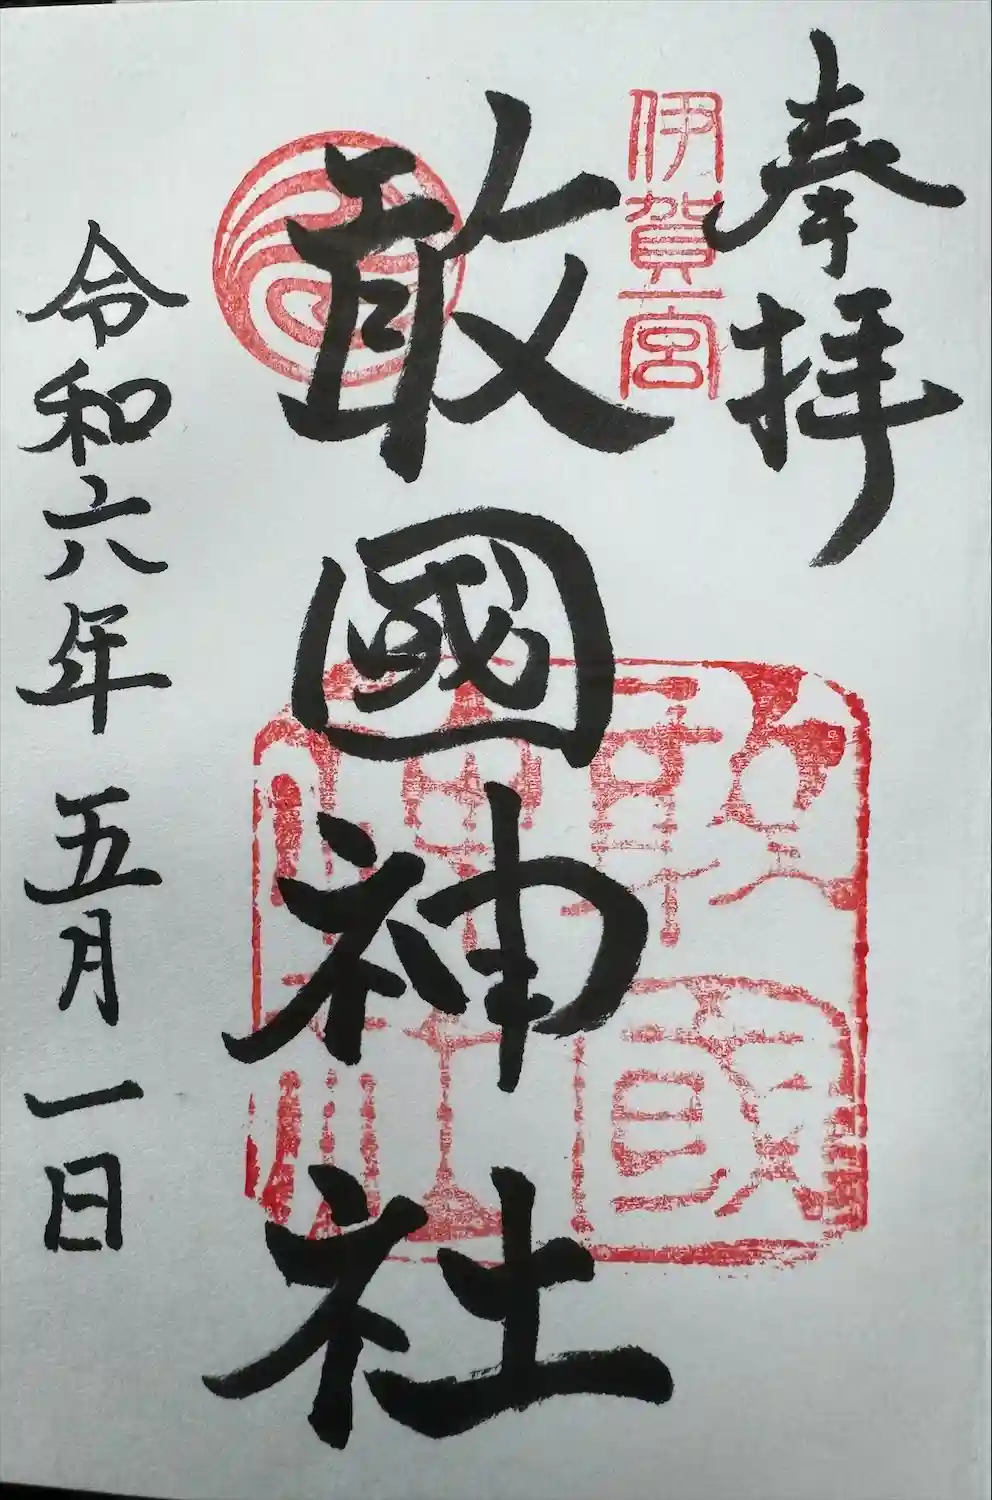 奉拝
伊賀一宮
敢國神社
敢國神社
令和六年五月一日